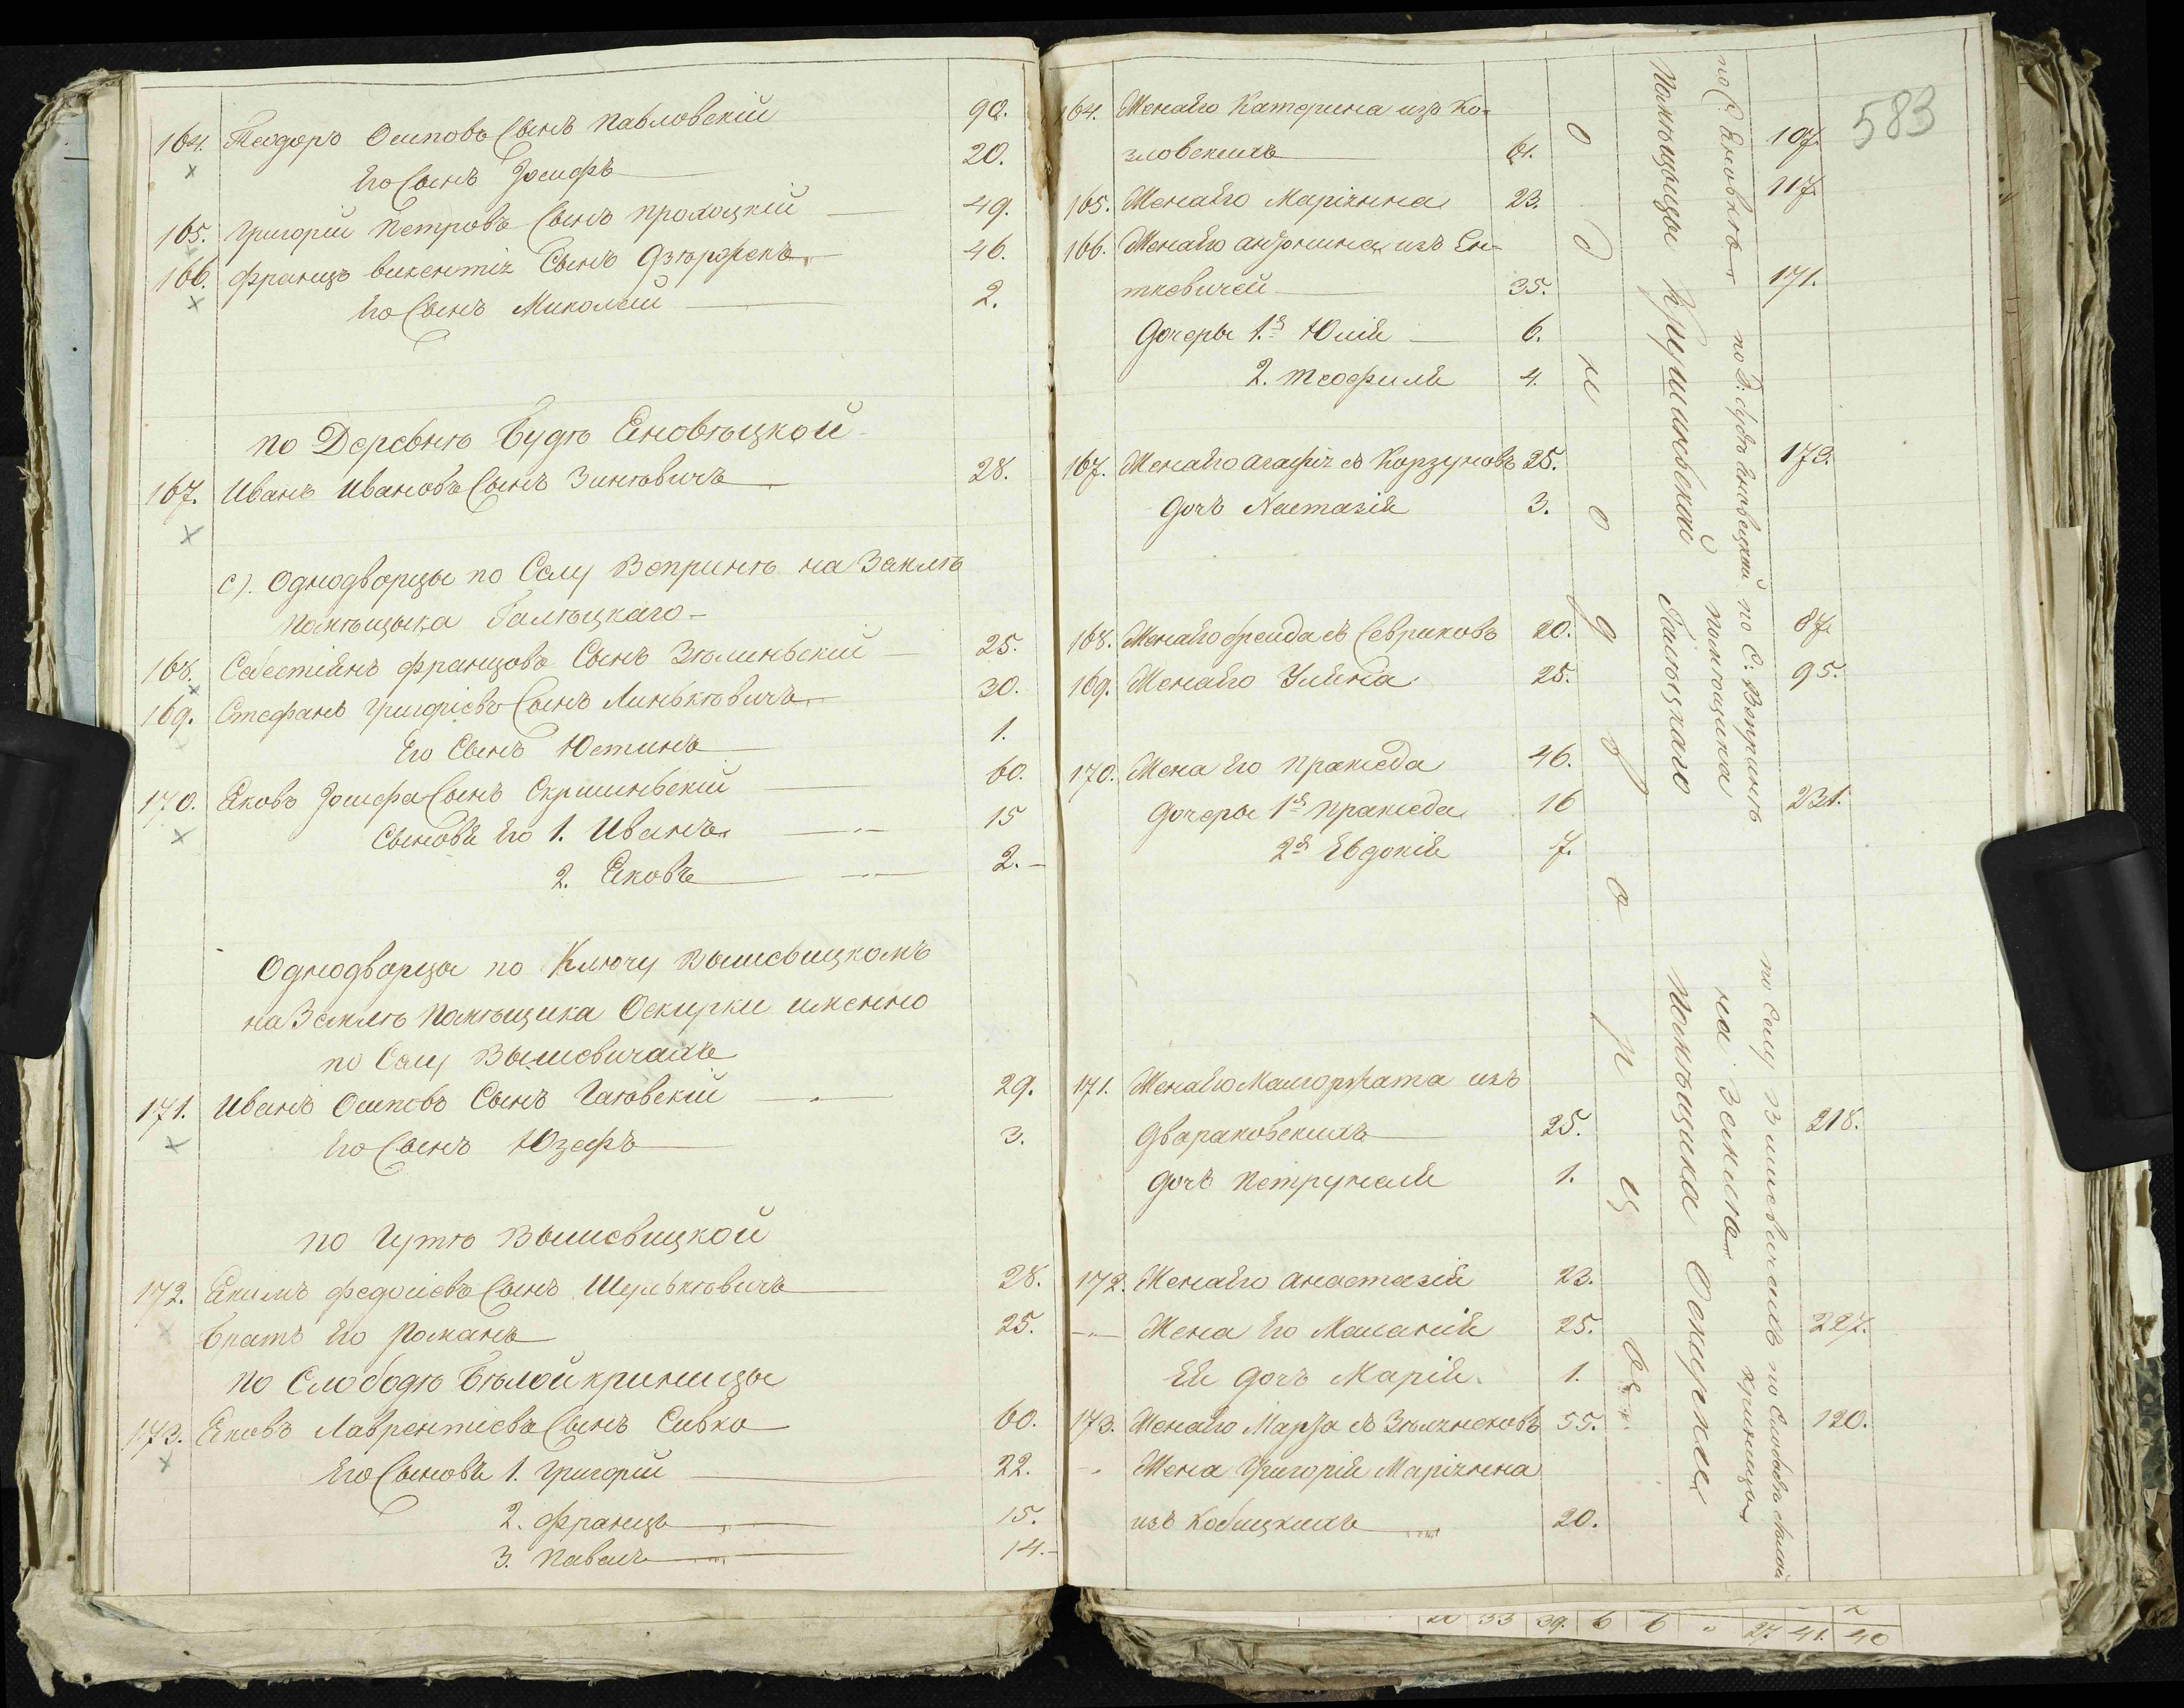 164. Теодоръ Осиповъ Сынъ Павловскій 90.
Его Сынъ Іосифъ 20.
165. Григорій Петровъ Сынъ Пролоцкій 49.
166. Францъ Викентія Сынъ 46.
Его Сынъ Миколай 2.
по Деревнѣ Будѣ Еновѣцкой
167. Иванъ Ивановъ Сынъ Зинѣвичъ 28.
с). Однодворцы по Селу Вепринѣ на Землѣ
Помѣщыка Галѣцкаго
168. Себестіянъ Францовъ Сынъ Зѣлиньскій 25.
169. Стефанъ Григоріевъ Сынъ Линькѣвичъ 30.
Его Сынъ Юстинъ 1.
170. Яковъ Іосифа Сынъ Скришиньскій 60.
Сыновя Его 1. Иванъ 15
2. Яковъ 2.
Однодворцы по Ключу Вышевицкомъ
на Землѣ Помѣщика Оскирки именно
по Селу Вышевичахъ
171. Иванъ Осиповъ Сынъ Гаѣвскій 29.
Его Сынъ Юзефъ 3.
по Гутѣ Вышевицкой
172. Якимъ Федосіевъ Сынъ Шулькѣвичъ 28.
Братъ Его Романъ 25.
по Слободѣ Бѣлой криницы
173. Яковъ Лаврентіевъ Сынъ Сивко 60.
Его Сыновя 1. Григорій 22.
2. Францъ 15.
3. Павелъ 14.
583
164. Жена Его Катерина изъ Ко-
зловскихъ 61. 107.
165. Жена Его Маріянна 23. 117.
166. Жена Его Антонина изъ Ен-
ткевичей 35. 171.
Дочеры 1я Юлія 6.
2. Теофиля 4.
167. Жена Его Агафія съ Корзуновъ 25. 173.
Дочь Настазія 3.
168. Жена Его Фрейда съ Севруковъ 20. 87.
169. Жена Его Уляна 25. 95.
170. Жена Его Пракседа 46.
Дочеры 1я Пракседа 16 231.
2я Евдокія 7.
171. Жена Его Малгоржата изъ
Двараковскихъ 25. 218.
Дочь Петрунеля 1.
172. Жена Его Анастазія 23.
Жена Его Маланія 25. 227.
Ея Дочь Марія 1.
173. Жена Его Марта съ 55. 120.
Жена Григорія Маріянна
изъ Кобицкихъ 20.
О д н о д в о р ц ы
Помѣщыцы Крушиньской Галѣцкаго
по С. Еновкѣ по Д: Будѣ Енавецкой по С: Вепринѣ
Помѣщика
Помѣщика Оскирки
на Землѣ
по Селу Вишевичахъ по Слободѣ Бѣлой
криницы
20 33 39. 6 6 27. 41. 40